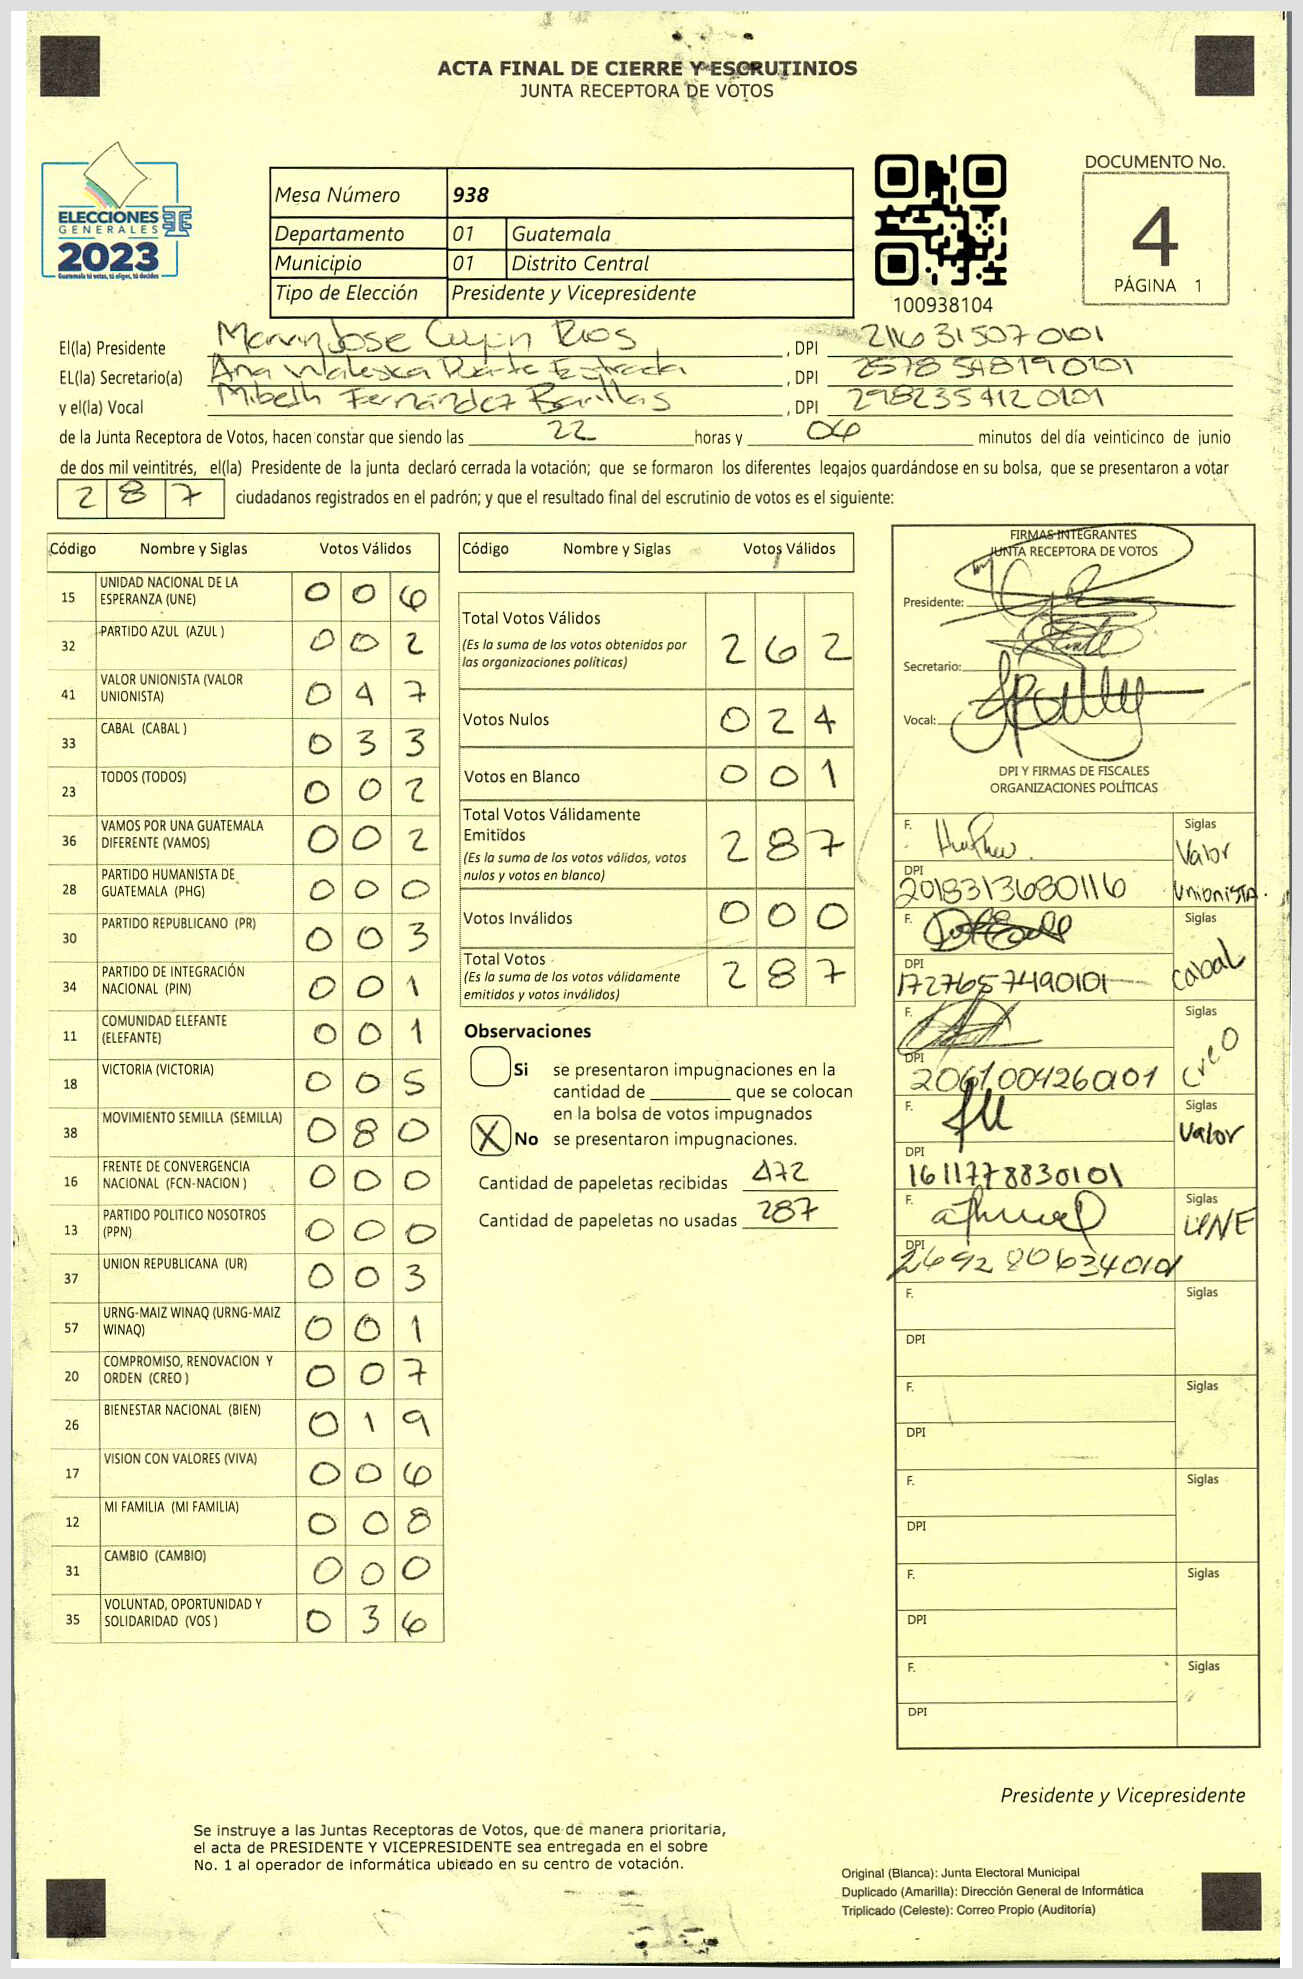 ACTA FINAL DE CIERRE Y ESCRUTINIOS
JUNTA RECEPTORA DE VOTOS
ELECCIONES
GENERALES
2023
Guatemala tú votas, tú eliges, tú decides
Mesa Número 938
Departamento 01 Guatemala
Municipio 01 Distrito Central
Tipo de Elección Presidente y Vicepresidente
100938104
DOCUMENTO No.
4
PÁGINA 1
El(la) Presidente Jose Rios , DPI 2116315070101
EL(la) Secretario(a) Ana Estrada , DPI 2578548190101
y el(la) Vocal Mibeth Fernández Barillas , DPI 2982354120101
de la Junta Receptora de Votos, hacen constar que siendo las 22 horas y 06 minutos del día veinticinco de junio
de dos mil veintitrés, el(la) Presidente de la junta declaró cerrada la votación; que se formaron los diferentes legajos guardándose en su bolsa, que se presentaron a votar
287 ciudadanos registrados en el padrón; y que el resultado final del escrutinio de votos es el siguiente:
Código Nombre y Siglas Votos Válidos
15 UNIDAD NACIONAL DE LA ESPERANZA (UNE) 0 0 6
32 PARTIDO AZUL (AZUL ) 0 0 2
41 VALOR UNIONISTA (VALOR UNIONISTA) 0 4 7
33 CABAL (CABAL ) 0 3 3
23 TODOS (TODOS) 0 0 2
36 VAMOS POR UNA GUATEMALA DIFERENTE (VAMOS) 0 0 2
28 PARTIDO HUMANISTA DE GUATEMALA (PHG) 0 0 0
30 PARTIDO REPUBLICANO (PR) 0 0 3
34 PARTIDO DE INTEGRACIÓN NACIONAL (PIN) 0 0 1
11 COMUNIDAD ELEFANTE (ELEFANTE) 0 0 1
18 VICTORIA (VICTORIA) 0 0 5
38 MOVIMIENTO SEMILLA (SEMILLA) 0 8 0
16 FRENTE DE CONVERGENCIA NACIONAL (FCN-NACION ) 0 0 0
13 PARTIDO POLITICO NOSOTROS (PPN) 0 0 0
37 UNION REPUBLICANA (UR) 0 0 3
57 URNG-MAIZ WINAQ (URNG-MAIZ WINAQ) 0 0 1
20 COMPROMISO, RENOVACION Y ORDEN (CREO ) 0 0 7
26 BIENESTAR NACIONAL (BIEN) 0 1 9
17 VISION CON VALORES (VIVA) 0 0 6
12 MI FAMILIA (MI FAMILIA) 0 0 8
31 CAMBIO (CAMBIO) 0 0 0
35 VOLUNTAD, OPORTUNIDAD Y SOLIDARIDAD (VOS ) 0 3 6
Código Nombre y Siglas Votos Válidos
Total Votos Válidos 2 6 2
(Es la suma de los votos obtenidos por
las organizaciones políticas)
Votos Nulos 0 2 4
Votos en Blanco 0 0 1
Total Votos Válidamente
Emitidos 2 8 7
(Es la suma de los votos válidos, votos
nulos y votos en blanco)
Votos Inválidos 0 0 0
Total Votos 2 8 7
(Es la suma de los votos válidamente
emitidos y votos inválidos)
Observaciones
Si se presentaron impugnaciones en la
cantidad de ________ que se colocan
en la bolsa de votos impugnados
X No se presentaron impugnaciones.
Cantidad de papeletas recibidas 472
Cantidad de papeletas no usadas 287
FIRMAS INTEGRANTES
JUNTA RECEPTORA DE VOTOS
Presidente:
Secretario:
Vocal:
DPI Y FIRMAS DE FISCALES
ORGANIZACIONES POLÍTICAS
F. Siglas Valor Unionista.
DPI 2018313680116
F. Siglas Cabal
DPI 1727657490101
F. Siglas Creo
DPI
F. Siglas Valor
DPI 1611778830101
F. Siglas UNE
DPI 2692806340101
F. Siglas
DPI
F. Siglas
DPI
F. Siglas
DPI
F. Siglas
DPI
F. Siglas
DPI
Presidente y Vicepresidente
Se instruye a las Juntas Receptoras de Votos, que de manera prioritaria,
el acta de PRESIDENTE Y VICEPRESIDENTE sea entregada en el sobre
No. 1 al operador de informática ubicado en su centro de votación.
Original (Blanca): Junta Electoral Municipal
Duplicado (Amarilla): Dirección General de Informática
Triplicado (Celeste): Correo Propio (Auditoría)